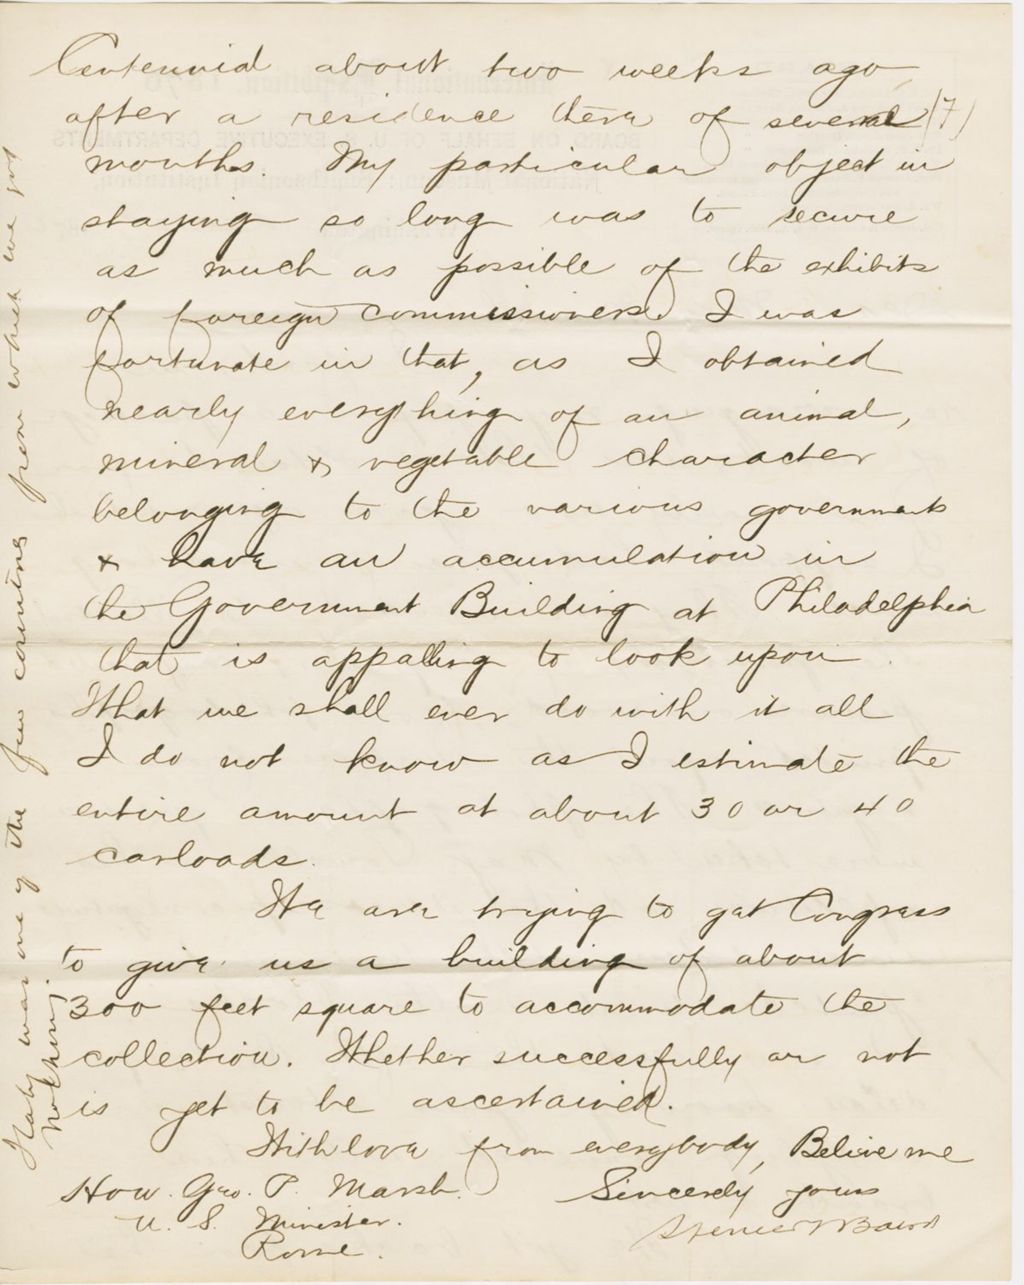 Centennial about two weeks ago,
after a residence there of several (7)
months. My particular object in
staying so long was to secure
as much as possible of the exhibits
of foreign commissioners. I was
fortunate in that, as I obtained
nearly everything of an animal,
mineral & vegetable character
belonging to the various governments
& have an accumulation in
the Government Building at Philadelphia
that is appalling to look upon.
What we shall ever do with it all
I do not know as I estimate the
entire amount at about 30 or 40
carloads.
We are trying to get Congress
to give us a building of about
300 feet square to accommodate the
collection. Whether successfully or not
is yet to be ascertained.
With love from everybody, Believe me
Sincerely yours
Spencer F Baird
Hon. Geo. P. Marsh.
U. S. Minister.
Rome.
Italy was one of the few countries from which we got
nothing.
International Exhibition, 1876
BOARD ON BEHALF OF U. S. EXECUTIVE DEPARTMENTS
National Museum: Smithsonian Institution,